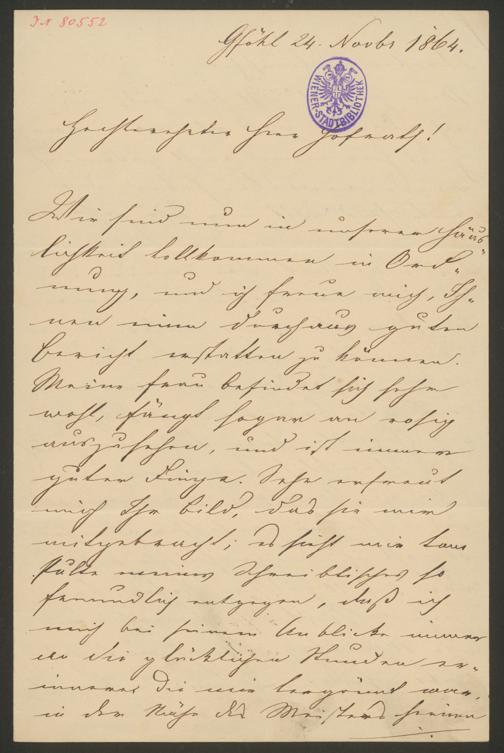 JN 80552
Gföhl 24. Novbr 1864.
WIENER-STADTBIBLIOTHEK
Hochverehrter Herr Hofrath!
Wir sind nun in unserer Häus-
lichkeit vollkommen in Ord-
nung, und ich freue mich, Ih-
nen einen durchaus guten
Bericht erstatten zu können.
Meine Frau befindet sich sehr
wohl, fängt sogar an rosig
auszusehen, und ist immer
guter Dinge. Sehr erfreut
mich Ihr Bild, das sie mir
mitgebracht; es sieht mir vom
Pulte meines Schreibtisches so
freundlich entgegen, daß ich
mich bei seinem Anblicke immer
an die glücklichen Stunden er-
innere, die mir vergönnt war,
in der Nähe des Meisters